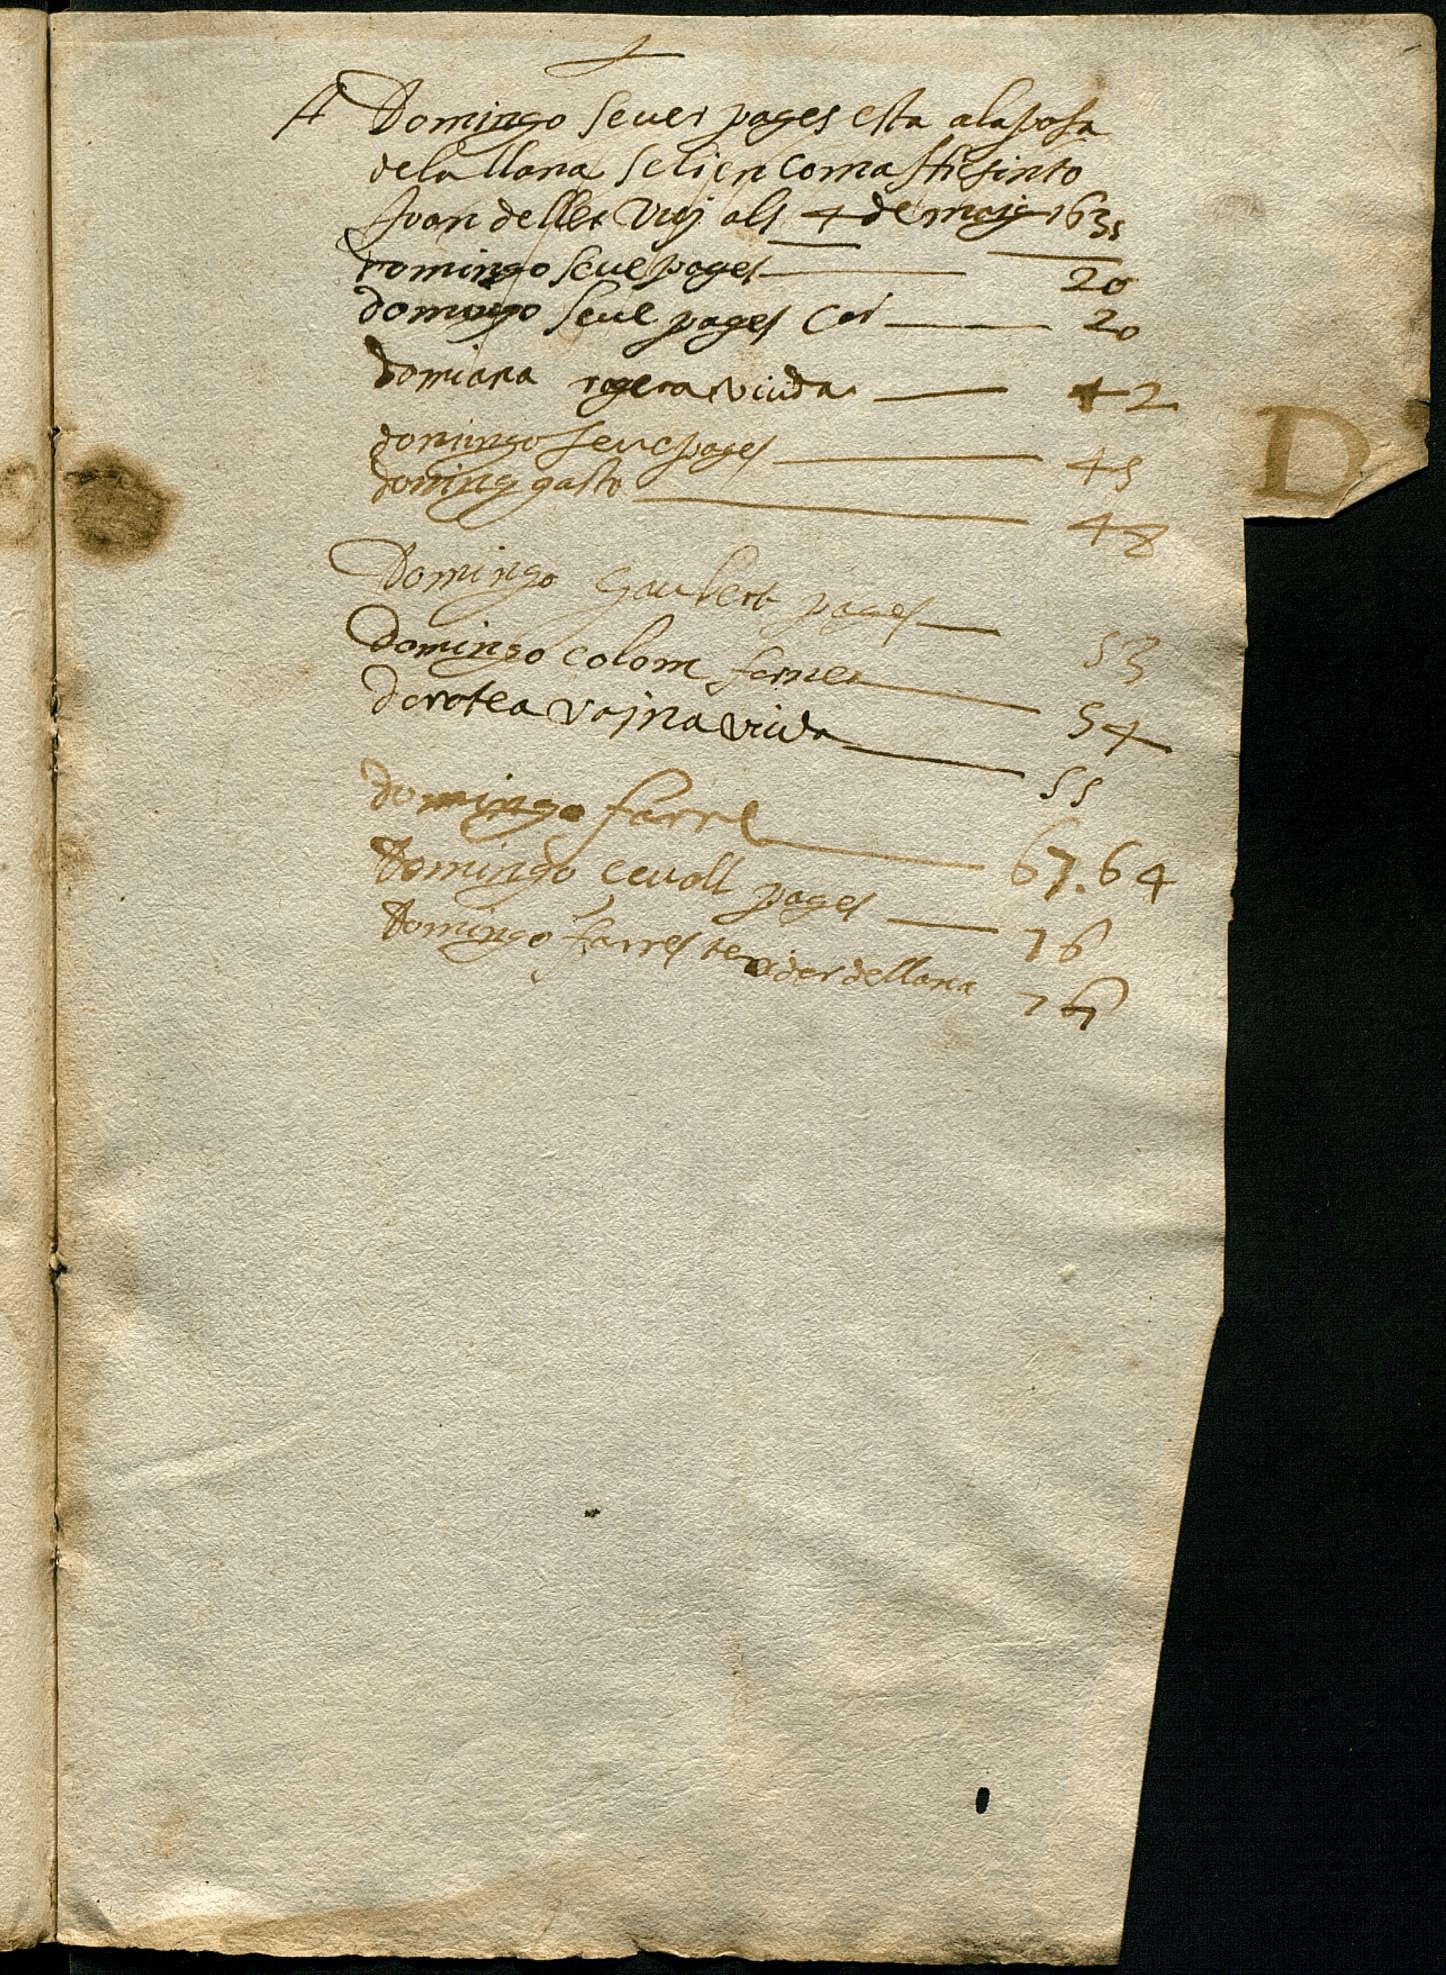 A Domingo seuer pages esta a la posa
de la llana
Juan delles vuy als 4 de maig 1631
domingo seue pages 20
domingo seue pages 20
domiana rogera viuda 42
domingo seue pages 45
doming gasto 48
Domingo Gaubert pages 53
Domingo colom forner 54
dorotea vajna viuda 55
domingo farre 67. 64
Domingo ceuoll pages 76
Domingo farres texidor de llana 76
D